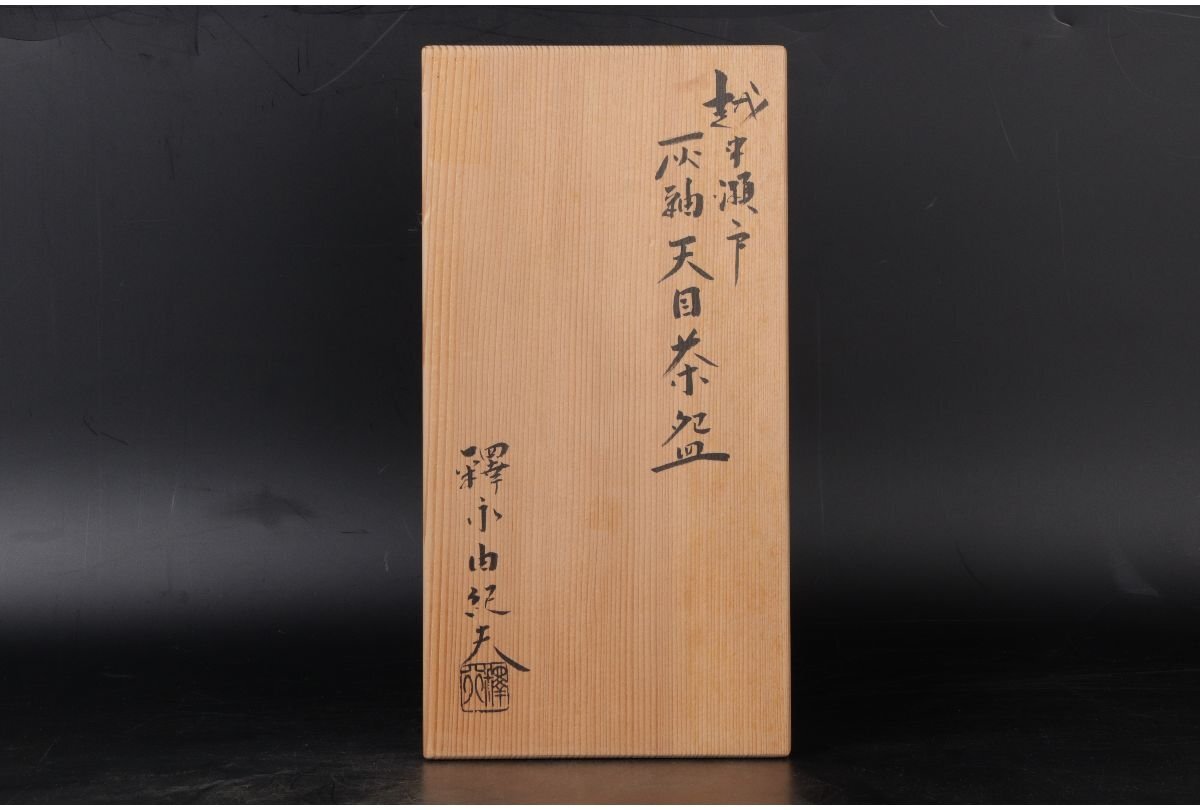 越中瀬戸
灰釉天目茶盌
釋永由紀夫